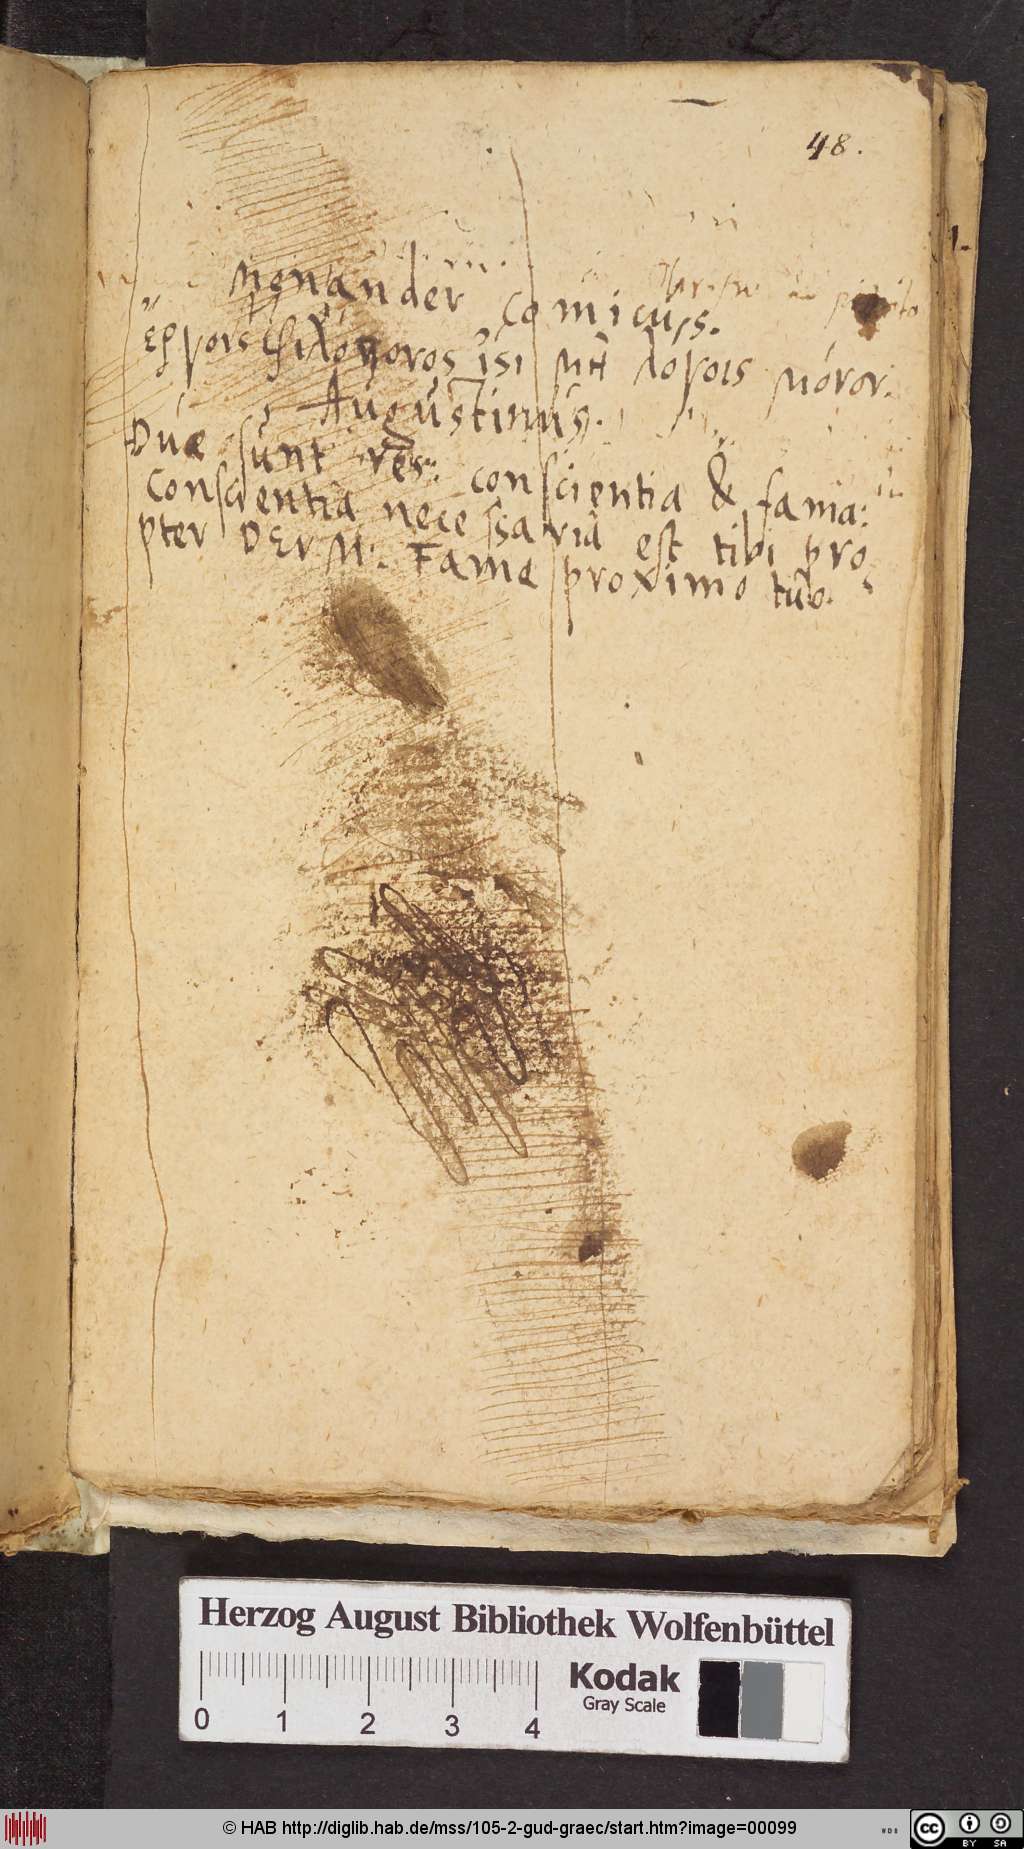 48.
Menander comicus.
Ἔργοις φιλόπονος ἴσι μὴ λόγοις μόνον.
Augustinus.
Duæ sunt res: conscientia & fama:
Conscientia necessaria est tibi pro
pter DEVM: Fama proximo tuo.
1.
Herzog August Bibliothek Wolfenbüttel
0 1 2 3 4
Kodak
Gray Scale
© HAB http://diglib.hab.de/mss/105-2-gud-graec/start.htm?image=00099
WDB
cc BY SA